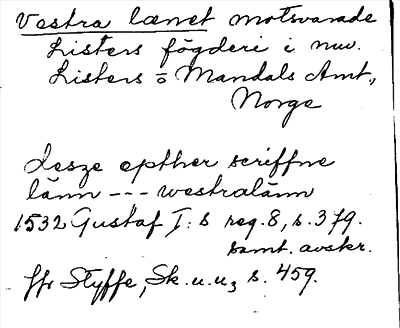 Vestra lænet motsvarade
Listers fögderi i nuv.
Listers o Mandals Amt,
Norge
desze epther scriffne
länn --- westralänn
1532 Gustaf I: s reg. 8, s. 379.
samt. avskr.
Jfr Styffe, Sk. u. u., s. 459.